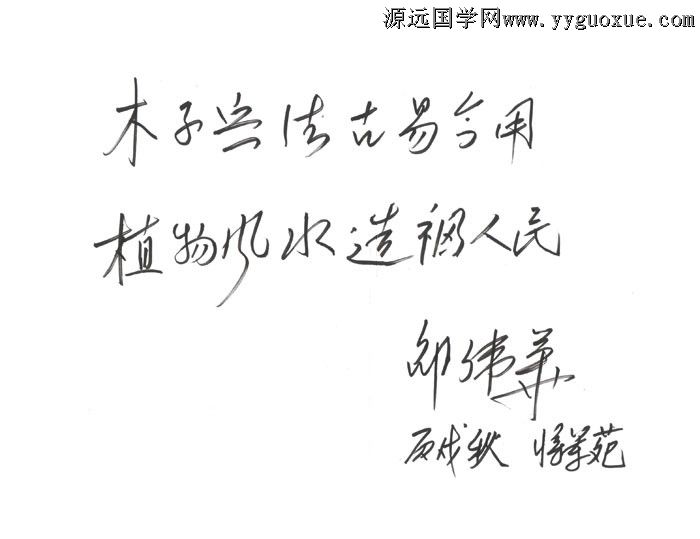 源远国学网www.yyguoxue.com
木子兴法古易今用
植物风水造福人民
邵伟华
丙戌秋